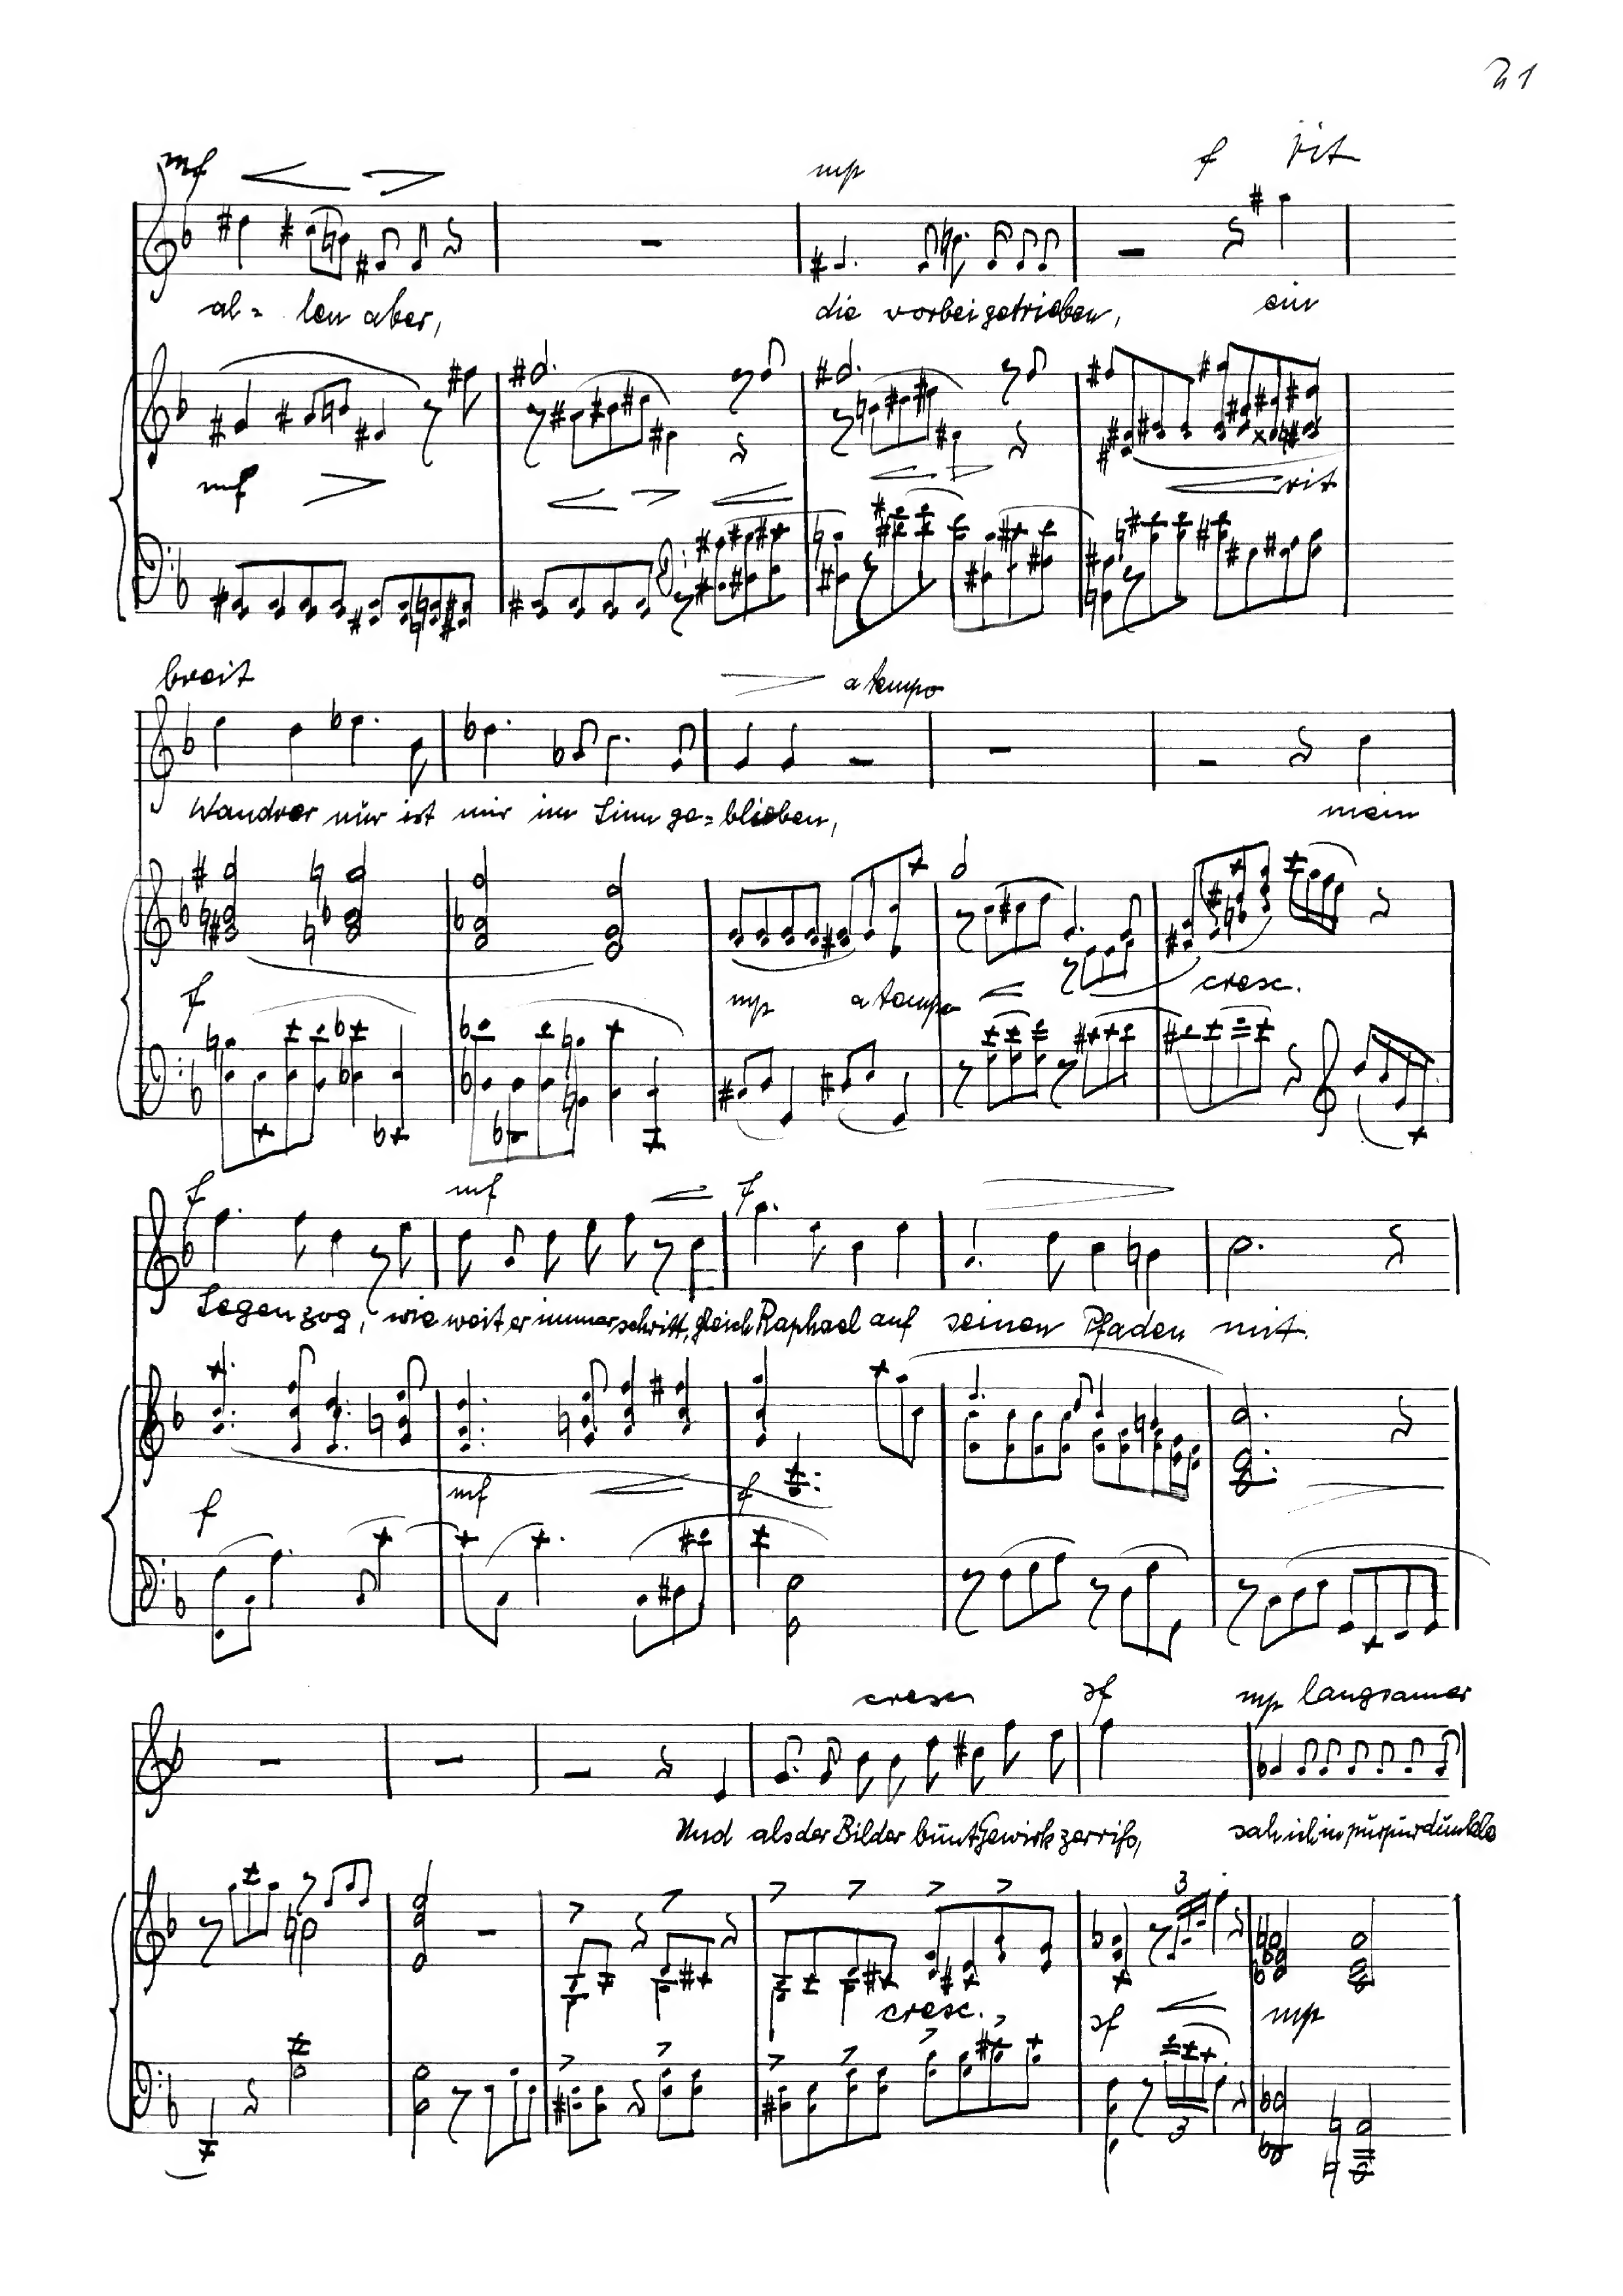 21
mf
mp f rit
al- len aber, die vorbeigetrieben, ein
mf rit
breit a tempo
Wandrer nur ist mir im Sinn ge- blieben, mein
f mp a tempo cresc.
f mf f
Segen zog, wie weit er immer schritt, gleich Raphael auf seinen Pfaden mit.
f mf f
cresc sf mp langsamer
Und als der Bilder bunt Gewirk zerriß, sah ich in purpurdunkle
3
cresc. sf mp
3